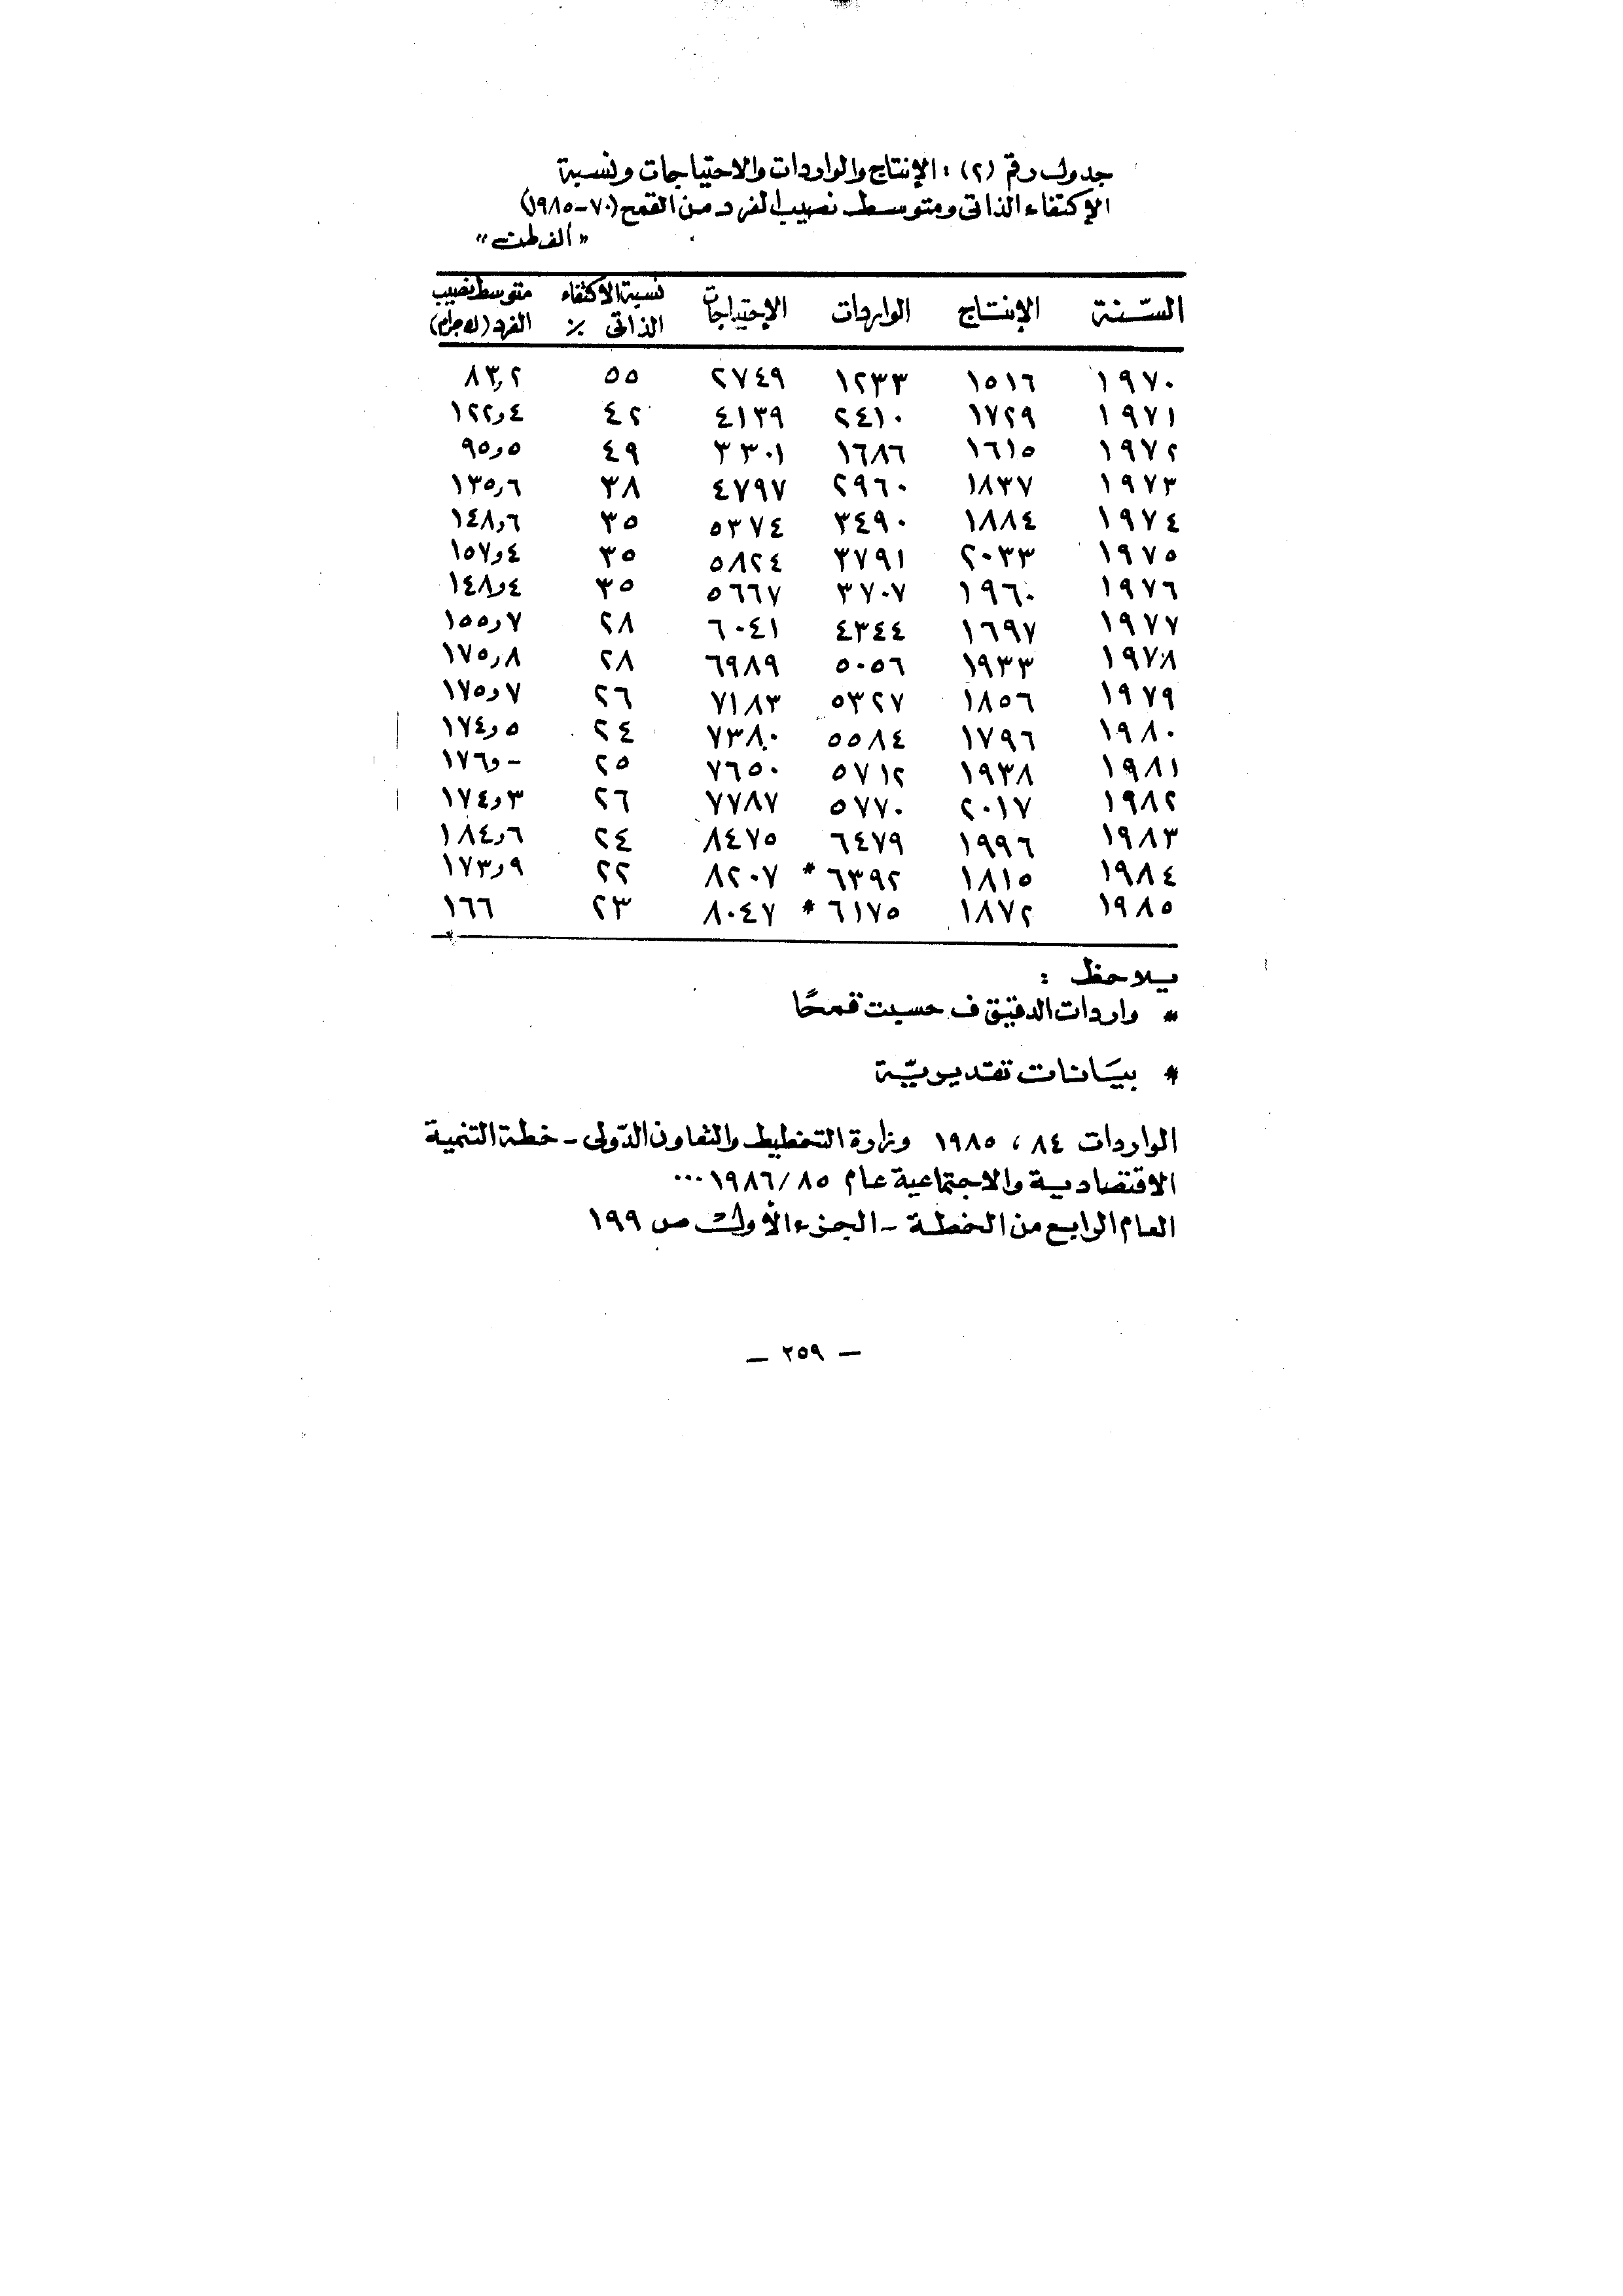 جدول رقم (٢) : الإنتاج والواردات والاحتياجات ونسبة
الإكتفاء الذاتى ومتوسط نصيب الفرد من القمح (٧٠-١٩٨٥)
« ألف طن »
السّنة الإنتاج الواردات الإحتياجات نسبة الاكتفاء الذاتى ٪ متوسط نصيب الفرد (ك جرام)
١٩٧٠ ١٥١٦ ١٢٣٣ ٢٧٤٩ ٥٥ ٨٣,٢
١٩٧١ ١٧٢٩ ٢٤١٠ ٤١٣٩ ٤٢ ١٢٢,٤
١٩٧٢ ١٦١٥ ١٦٨٦ ٣٣٠١ ٤٩ ٩٥,٥
١٩٧٣ ١٨٣٧ ٢٩٦٠ ٤٧٩٧ ٣٨ ١٣٥,٦
١٩٧٤ ١٨٨٤ ٣٤٩٠ ٥٣٧٤ ٣٥ ١٤٨,٦
١٩٧٥ ٢٠٣٣ ٣٧٩١ ٥٨٢٤ ٣٥ ١٥٧,٤
١٩٧٦ ١٩٦٠ ٣٧٠٧ ٥٦٦٧ ٣٥ ١٤٨,٤
١٩٧٧ ١٦٩٧ ٤٣٤٤ ٦٠٤١ ٢٨ ١٥٥,٧
١٩٧٨ ١٩٣٣ ٥٠٥٦ ٦٩٨٩ ٢٨ ١٧٥,٨
١٩٧٩ ١٨٥٦ ٥٣٢٧ ٧١٨٣ ٢٦ ١٧٥,٧
١٩٨٠ ١٧٩٦ ٥٥٨٤ ٧٣٨٠ ٢٤ ١٧٤,٥
١٩٨١ ١٩٣٨ ٥٧١٢ ٧٦٥٠ ٢٥ ١٧٦,-
١٩٨٢ ٢٠١٧ ٥٧٧٠ ٧٧٨٧ ٢٦ ١٧٤,٣
١٩٨٣ ١٩٩٦ ٦٤٧٩ ٨٤٧٥ ٢٤ ١٨٤,٦
١٩٨٤ ١٨١٥ ٦٣٩٢ * ٨٢٠٧ ٢٢ ١٧٣,٩
١٩٨٥ ١٨٧٢ ٦١٧٥ * ٨٠٤٧ ٢٣ ١٦٦
يلاحظ :
* واردات الدقيق ف حسبت قمحًا
* بيَانات تقديريّة
الواردات ٨٤ ، ١٩٨٥ وزارة التخطيط والتعاون الدّولى - خطة التنمية
الاقتصادية والاجتماعية عام ٨٥/ ١٩٨٦ ...
العام الرابع من الخطة - الجزء الأول ص ١٩٩
— ٢٥٩ —